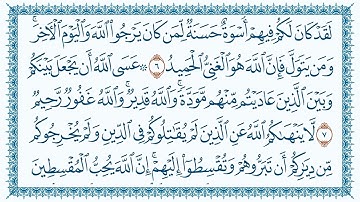 لَقَدْ كَانَ لَكُمْ فِيهِمْ أُسْوَةٌ حَسَنَةٌ لِّمَن كَانَ يَرْجُوا۟ ٱللَّهَ وَٱلْيَوْمَ ٱلْـَٔاخِرَ ۚ
وَمَن يَتَوَلَّ فَإِنَّ ٱللَّهَ هُوَ ٱلْغَنِىُّ ٱلْحَمِيدُ ٦ ۞ عَسَى ٱللَّهُ أَن يَجْعَلَ بَيْنَكُمْ
وَبَيْنَ ٱلَّذِينَ عَادَيْتُم مِّنْهُم مَّوَدَّةً ۚ وَٱللَّهُ قَدِيرٌ ۚ وَٱللَّهُ غَفُورٌ رَّحِيمٌ
٧ لَّا يَنْهَىٰكُمُ ٱللَّهُ عَنِ ٱلَّذِينَ لَمْ يُقَـٰتِلُوكُمْ فِى ٱلدِّينِ وَلَمْ يُخْرِجُوكُم
مِّن دِيَـٰرِكُمْ أَن تَبَرُّوهُمْ وَتُقْسِطُوٓا۟ إِلَيْهِمْ ۚ إِنَّ ٱللَّهَ يُحِبُّ ٱلْمُقْسِطِينَ